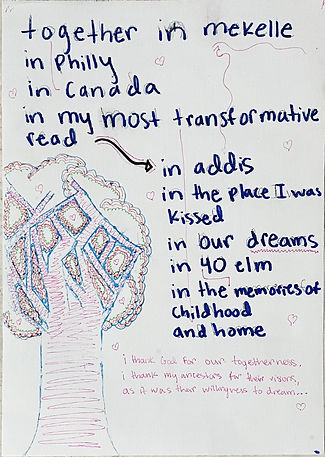 together in mekelle
in Philly
in Canada
in my most transformative
read
in addis
in the place I was
kissed
in our dreams
in 40 elm
in the memories of
childhood
and home
i thank God for our togetherness.
i thank my ancestors for their visions,
as it was their willingness to dream...